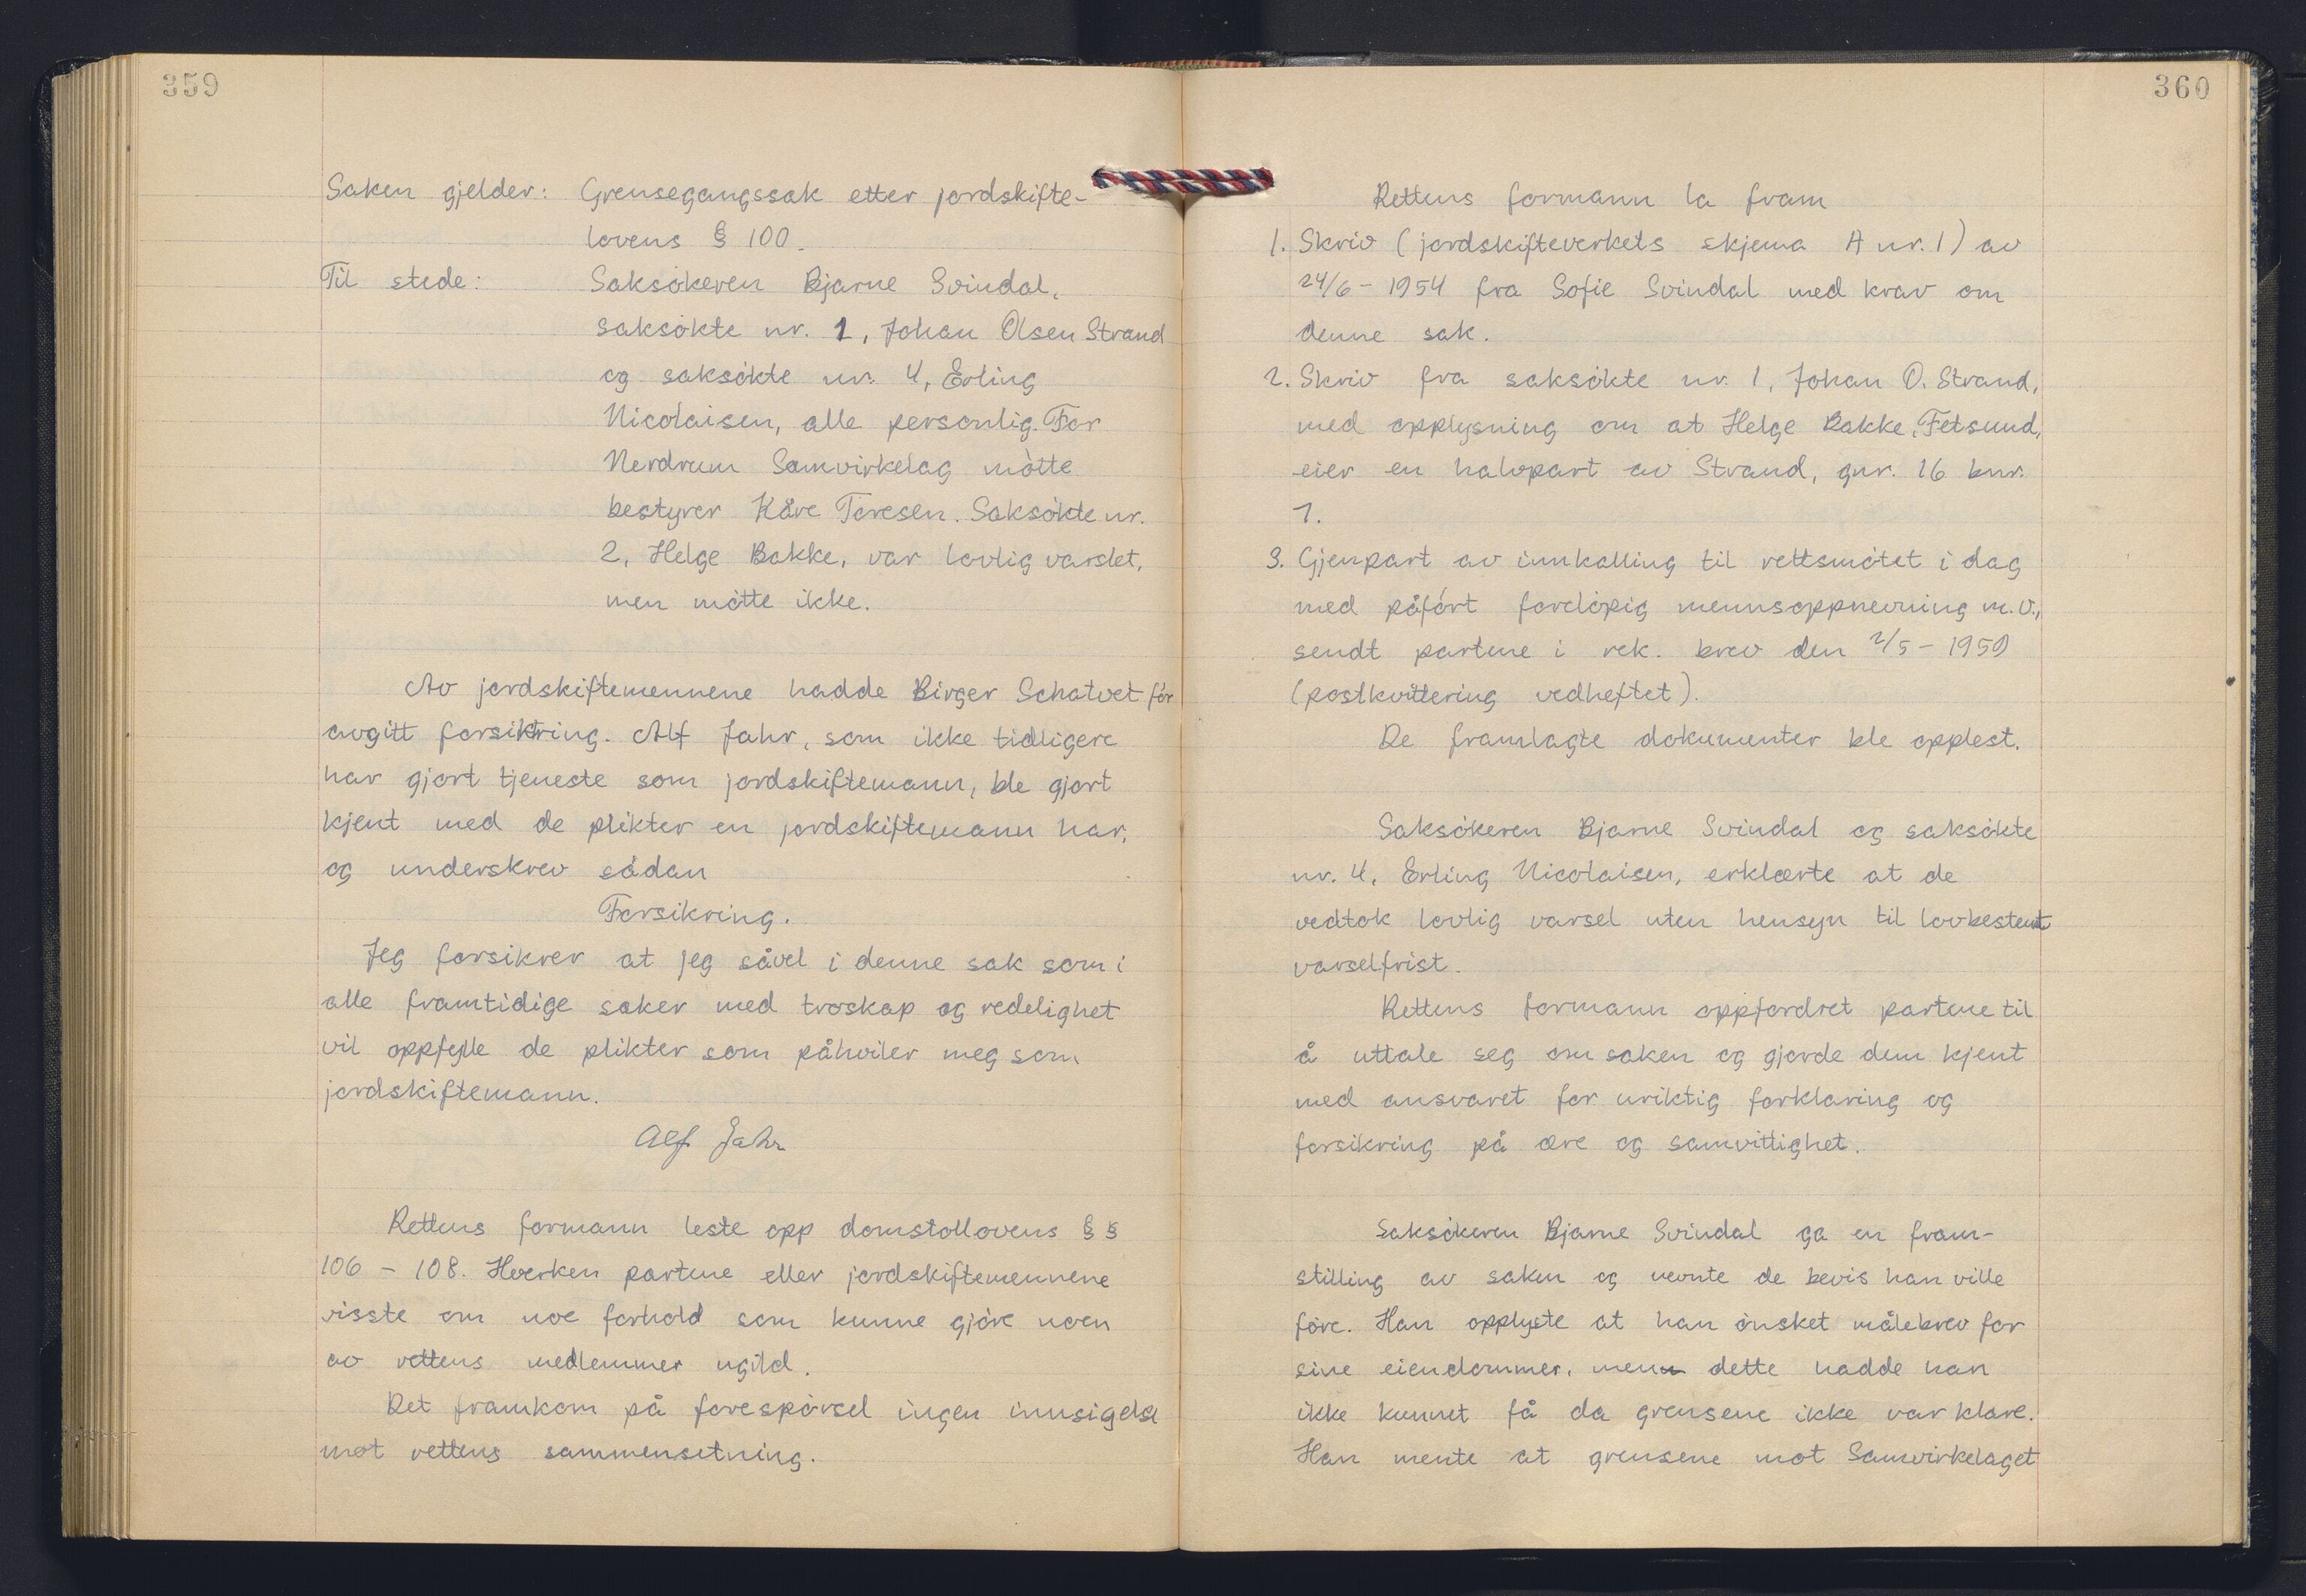 359
Saken gjelder: Grensegangssak etter jordskifte-
lovens § 100.
Til stede: Saksökeren Bjarne Svindal,
saksökte nr. 1, Johan Olsen Strand
og saksökte nr. 4, Erling
Nicolaisen, alle personlig. For
Nerdrum Samvirkelag mötte
bestyrer Kåre Toresen. Saksökte nr.
2, Helge Bakke, var lovlig varslet,
men mötte ikke.
Av jordskiftemennene hadde Birger Schatvet för
avgitt forsikring. Alf Jahr, som ikke tidligere
har gjort tjeneste som jordskiftemann, ble gjort
kjent med de plikter en jordskiftemann har,
og underskrev sådan
Forsikring.
Jeg forsikrer at jeg såvel i denne sak som i
alle framtidige saker med troskap og redelighet
vil oppfylle de plikter som påhviler meg som
jordskiftemann.
Alf Jahr
Rettens formann leste opp domstollovens § §
106 - 108. Hverken partene eller jordskiftemennene
visste om noe forhold som kunne gjöre noen
av rettens medlemmer ugild.
Det framkom på forespörsel ingen innsigelse
mot rettens sammensetning.
360
Rettens formann la fram
1. Skriv (jordskifteverkets skjema A nr. 1) av
24/6 - 1954 fra Sofie Svindal med krav om
denne sak.
2. Skriv fra saksökte nr. 1, Johan O. Strand,
med opplysning om at Helge Bakke, Fetsund,
eier en halvpart av Strand, gnr. 16 bnr.
1.
3. Gjenpart av innkalling til rettsmötet i dag
med påfört forelöpig mennsoppnevning m.v.,
sendt partene i rek. brev den 2/5 - 1959
(postkvittering vedheftet).
De framlagte dokumenter ble opplest.
Saksökeren Bjarne Svindal og saksökte
nr. 4, Erling Nicolaisen, erklærte at de
vedtok lovlig varsel uten hensyn til lovbestemt
varselfrist.
Rettens formann oppfordret partene til
å uttale seg om saken og gjorde dem kjent
med ansvaret for uriktig forklaring og
forsikring på ære og samvittighet.
Saksökeren Bjarne Svindal ga en fram-
stilling av saken og nevnte de bevis han ville
före. Han opplyste at han önsket målebrev for
sine eiendommer, men dette hadde han
ikke kunnet få da grensene ikke var klare.
Han mente at grensene mot Samvirkelaget